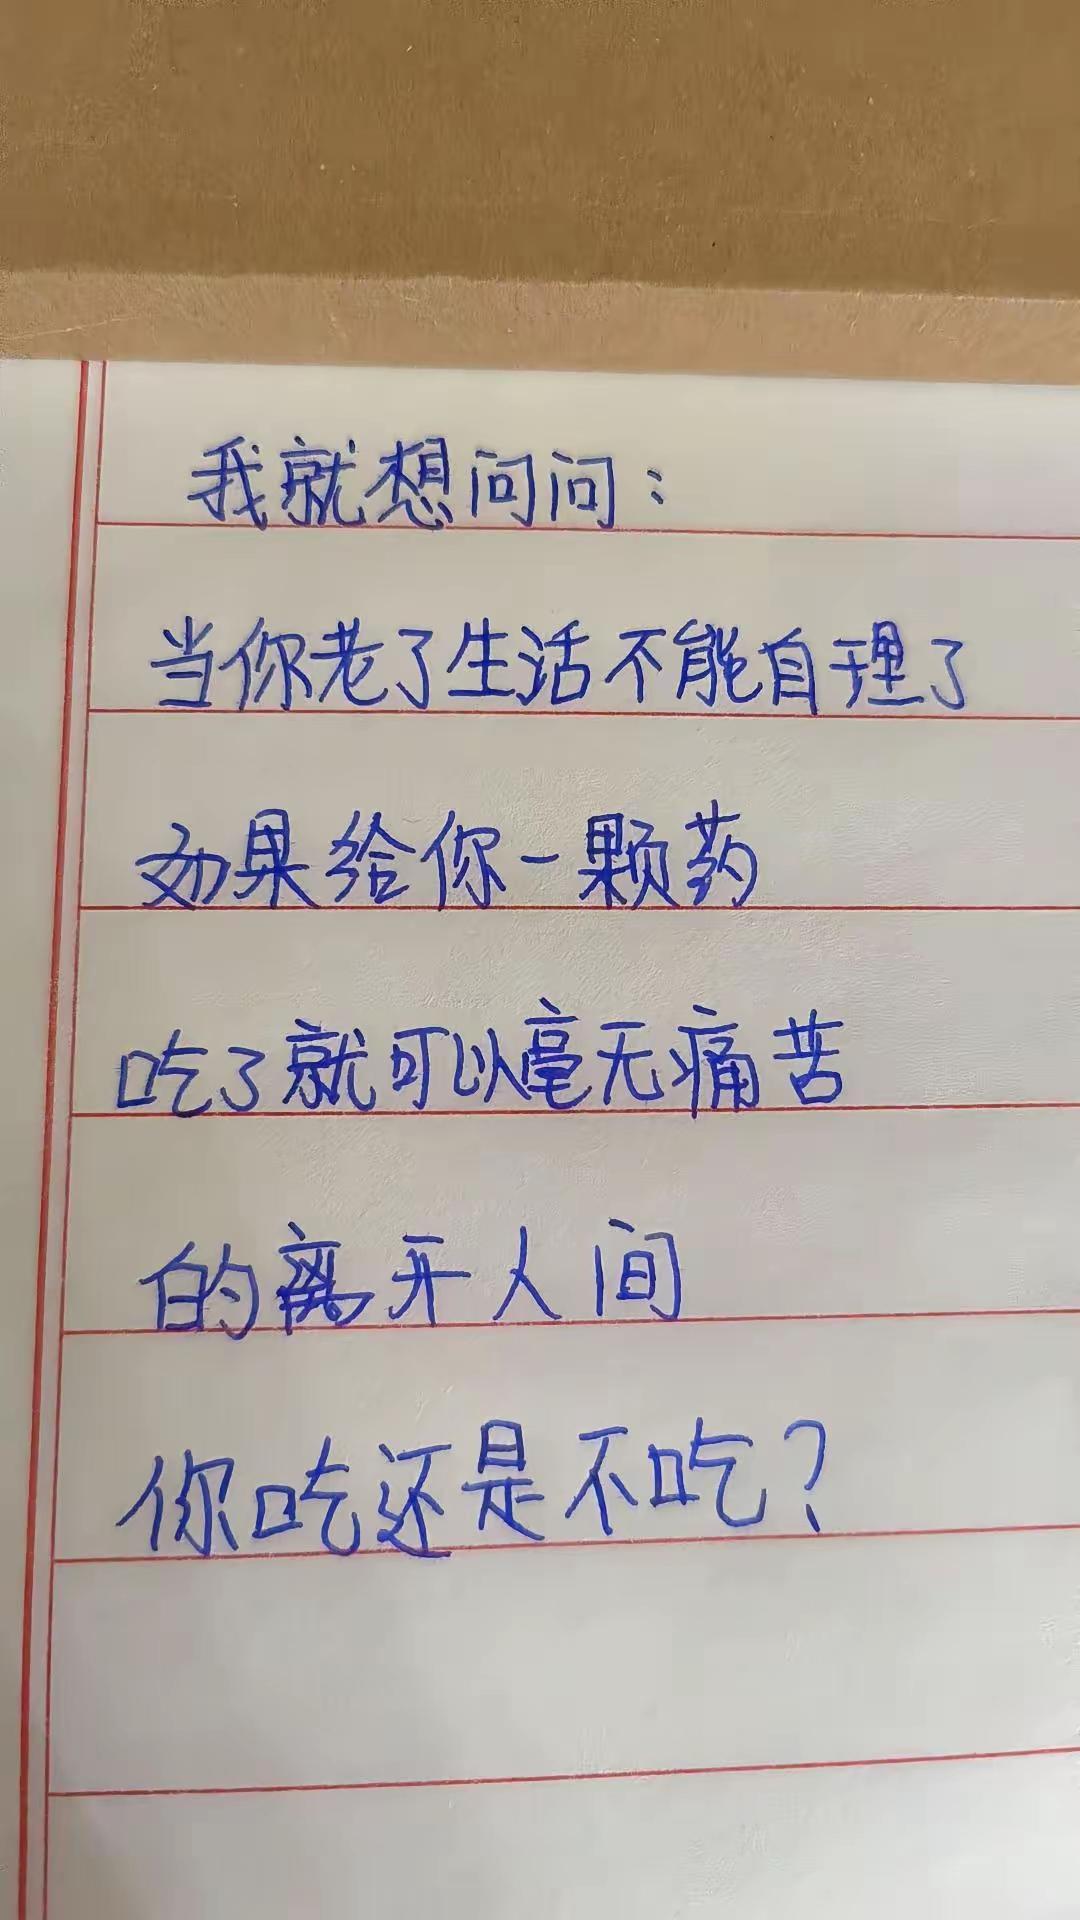 我就想问问：
当你老了生活不能自理了
如果给你一颗药
吃了就可以毫无痛苦
的离开人间
你吃还是不吃？